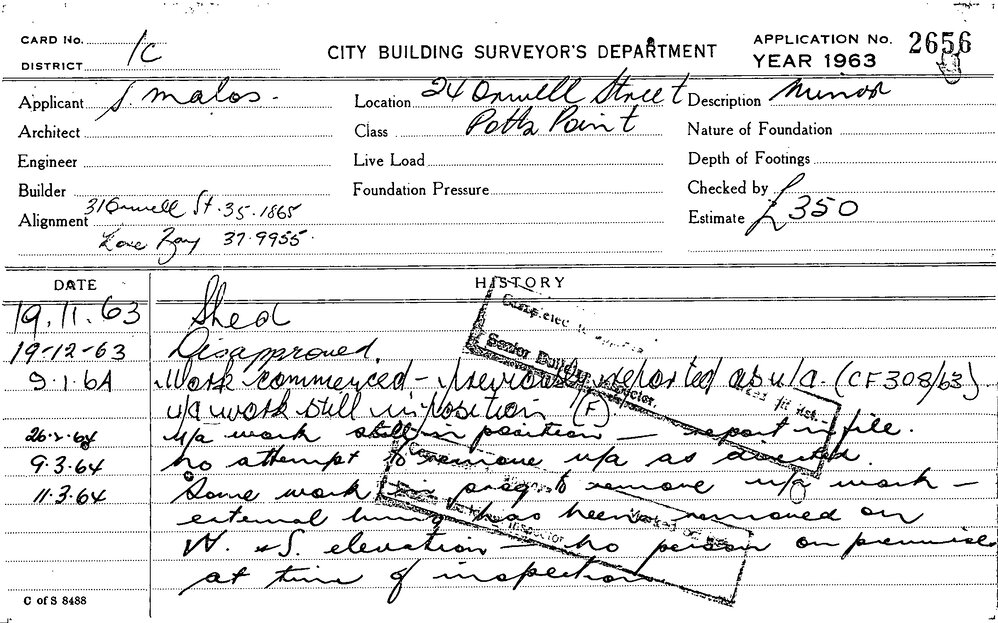 CARD No. 1c
DISTRICT
CITY BUILDING SURVEYOR'S DEPARTMENT
APPLICATION No. 2656
YEAR 1963
Applicant S. Malos.
Location 24 Orwell Street
Description Minor
Architect
Class Potts Point
Nature of Foundation
Engineer
Live Load
Depth of Footings
Builder
Foundation Pressure
Checked by
Alignment 31 Orwell St. 35.1865
37.9955.
Estimate £350
DATE
HISTORY
19.11.63 Shed
19-12-63 Disapproved.
9.1.64 Work commenced - previously reported as u/a. (CF308/63)
u/a work still in position (F)
26.2.64 u/a work still in position — report in file.
9.3.64 No attempt to remove u/a as directed.
11.3.64 Some work in prog to remove u/a work —
external lining has been removed on
W. & S. elevation — no person on premises
at time of inspection
Senior Building Inspector
Inspector
C of S 8488